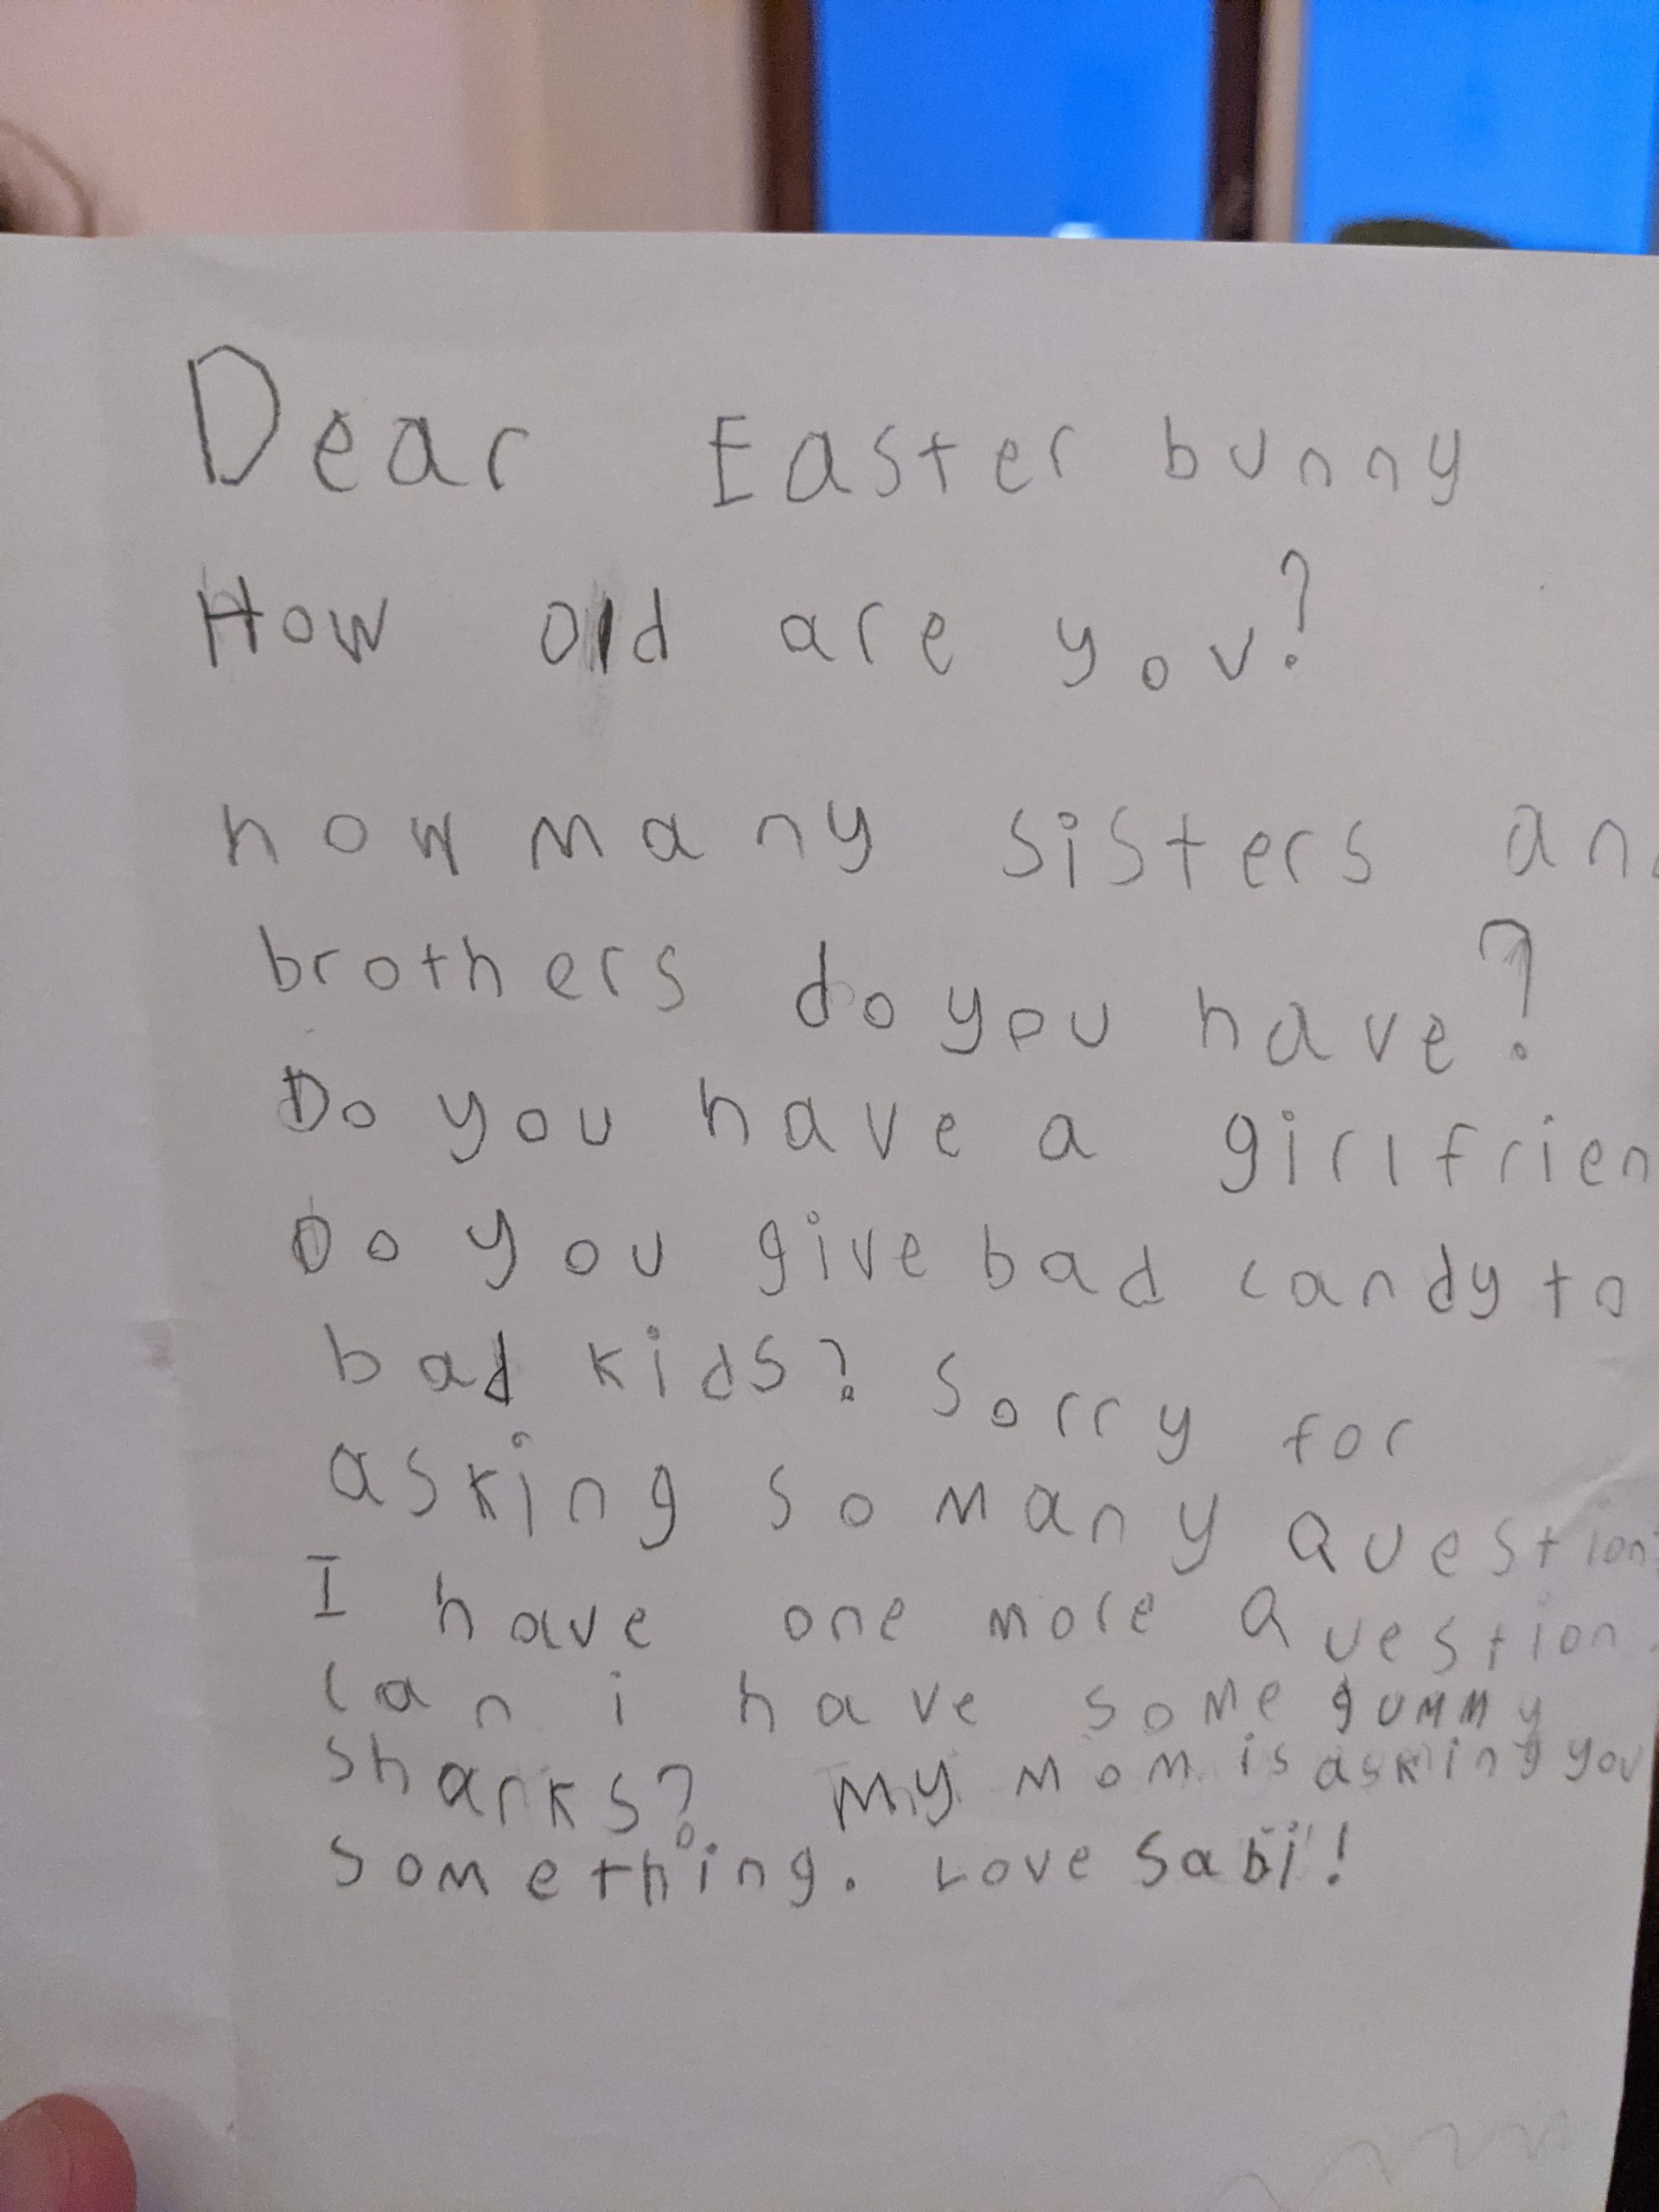 Dear Easter bunny
How old are you?
how many sisters an
brothers do you have?
Do you have a girlfrien
Do you give bad candy to
bad kids? Sorry for
asking so many Question
I have one more Question.
can i have some gummy
sharks? My mom is asking you
something. Love Sabi!